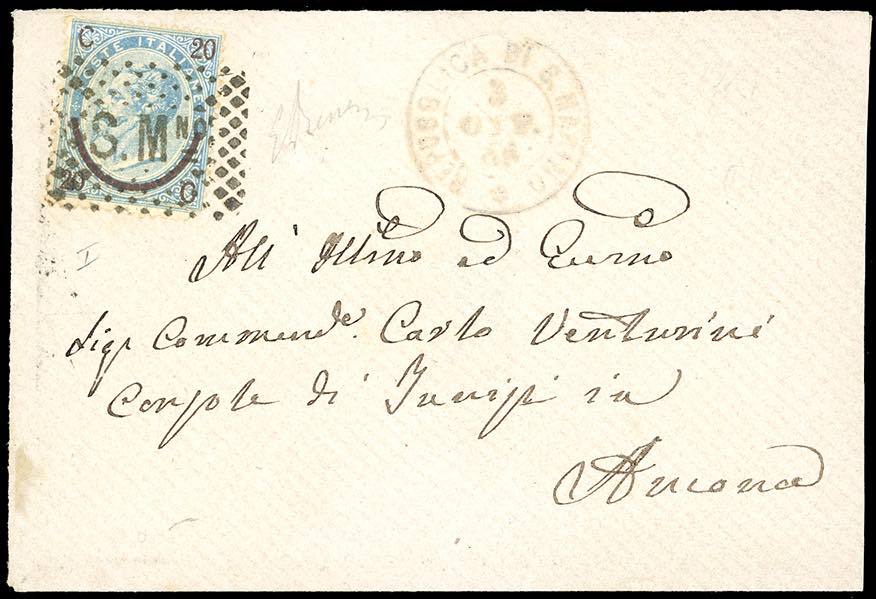 C 20
POSTE ITALIANE
S. Mno
20 C
REPUBBLICA DI S. MARINO
3
All' Illmo ed Eccmo
Sigr Commende. Carlo Venturini
Console di in
Ancona